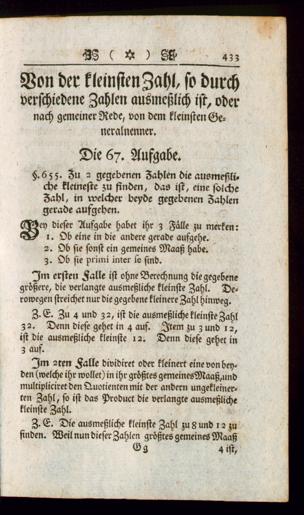 ( ✡ ) 433
Von der kleinsten Zahl, so durch
verschiedene Zahlen ausmeßlich ist, oder
nach gemeiner Rede, von dem kleinsten Ge-
neralnenner.
Die 67. Aufgabe.
§. 655. Zu 2 gegebenen Zahlen die ausmeßli-
che kleineste zu finden, das ist, eine solche
Zahl, in welcher beyde gegebenen Zahlen
gerade aufgehen.
Bey dieser Aufgabe habet ihr 3 Fälle zu merken:
1. Ob eine in die andere gerade aufgehe.
2. Ob sie sonst ein gemeines Maaß habe.
3. Ob sie primi inter se sind.
Im ersten Falle ist ohne Berechnung die gegebene
größere, die verlangte ausmeßliche kleinste Zahl. De-
rowegen streichet nur die gegebene kleinere Zahl hinweg.
Z. E. Zu 4 und 32, ist die ausmeßliche kleinste Zahl
32. Denn diese gehet in 4 auf. Item zu 3 und 12,
ist die ausmeßliche kleinste 12. Denn diese gehet in
3 auf.
Im 2ten Falle dividiret oder kleinert eine von bey-
den (welche ihr wollet) in ihr größtes gemeines Maaß, und
multipliciret den Quotienten mit der andern ungekleiner-
ten Zahl, so ist das Product die verlangte ausmeßliche
kleinste Zahl.
Z. E. Die ausmeßliche kleinste Zahl zu 8 und 12 zu
finden. Weil nun dieser Zahlen größtes gemeines Maaß
Gg 4 ist,